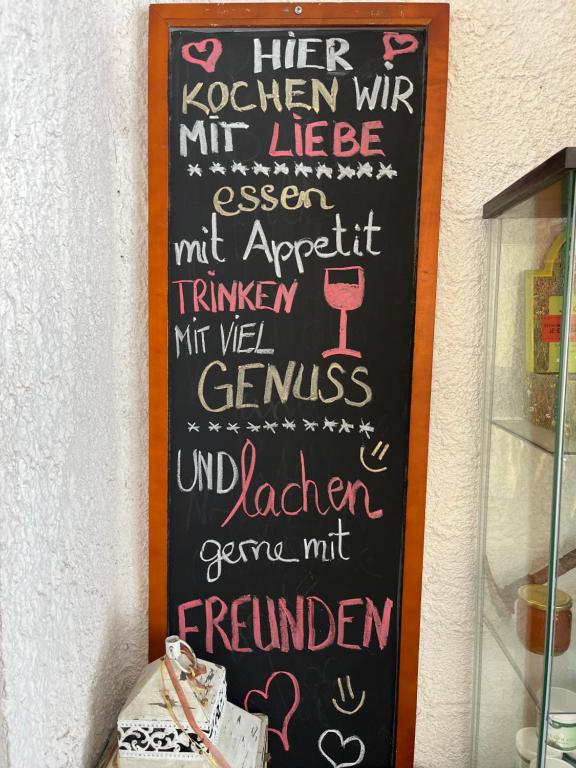 HIER
KOCHEN WIR
MIT LIEBE
essen
mit Appetit
TRINKEN
MIT VIEL
GENUSS
UND lachen
gerne mit
FREUNDEN